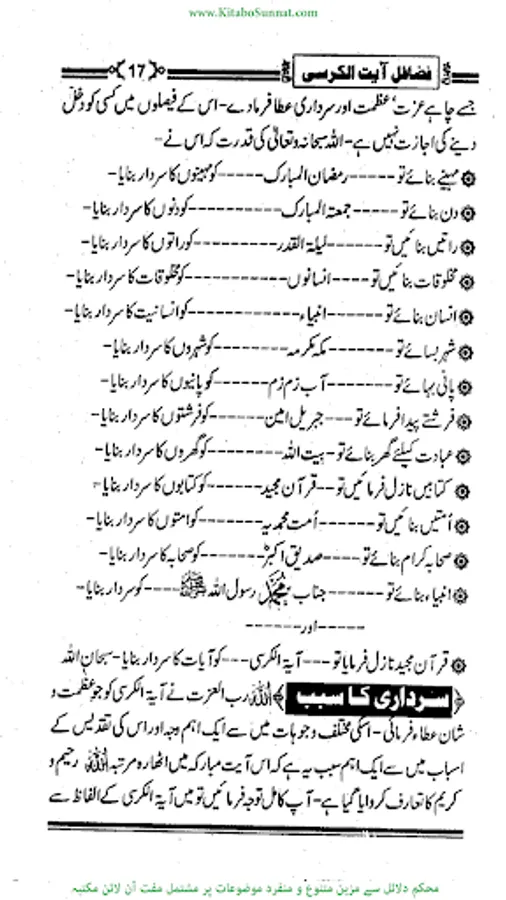 www.KitaboSunnat.com
فضائل آیت الکرسی 17
جسے چاہے عزت‘ عظمت اور سرداری عطا فرما دے- اس کے فیصلوں میں کسی کو دخل
دینے کی اجازت نہیں ہے- اللہ سبحانہ وتعالیٰ کی قدرت کہ اس نے-
مہینے بنائے تو-----رمضان المبارک-----کو مہینوں کا سردار بنایا-
دن بنائے تو-----جمعۃ المبارک---------کو دنوں کا سردار بنایا-
راتیں بنائیں تو-------لیلۃ القدر---------کو راتوں کا سردار بنایا-
مخلوقات بنائیں تو----انسانوں---------کو مخلوقات کا سردار بنایا-
انسان بنائے تو-------انبیاء------------کو انسانیت کا سردار بنایا-
شہر بسائے تو-------مکہ مکرمہ--------کو شہروں کا سردار بنایا-
پانی بہائے تو--------آب زم زم------کو پانیوں کا سردار بنایا-
فرشتے پیدا فرمائے تو---جبریل امین------کو فرشتوں کا سردار بنایا-
عبادت کیلئے گھر بنائے تو-بیت اللہ--------کو گھروں کا سردار بنایا-
کتابیں نازل فرمائیں تو--قرآن مجید------کو کتابوں کا سردار بنایا-
اُمتیں بنائیں تو-------اُمت محمدیہ-------کو امتوں کا سردار بنایا-
صحابہ کرام بنائے تو----صدیق اکبرؓ-------کو صحابہ کا سردار بنایا-
انبیاء بنائے تو------جناب محمد رسول اللہ ﷺ----کو سردار بنایا-
-----اور-----
قرآن مجید نازل فرمایا تو---آیۃ الکرسی---کو آیات کا سردار بنایا-سبحان اللہ
سرداری کا سبب اللہ رب العزت نے آیۃ الکرسی کو جو عظمت و
شان عطاء فرمائی- اسکی مختلف وجوہات میں سے ایک اہم وجہ اور اس کی تقدیس کے
اسباب میں سے ایک اہم سبب یہ ہے کہ اس آیت مبارکہ میں اٹھارہ مرتبہ اللہ رحیم و
کریم کا تعارف کروایا گیا ہے- آپ کامل توجہ فرمائیں تو میں آیۃ الکرسی کے الفاظ سے
محکم دلائل سے مزین متنوع و منفرد موضوعات پر مشتمل مفت آن لائن مکتبہ